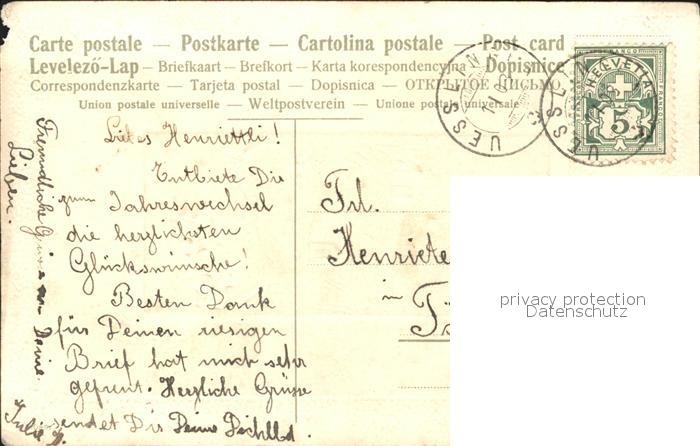 Carte postale — Postkarte — Cartolina postale — Post card
Levelező-Lap — Briefkaart — Brefkort — Karta korespondencyjna — Dopisnice
Correspondenzkarte — Tarjeta postal — Dopisnica — ОТКРЫТОЕ ПИСЬМО
Union postale universelle — Weltpostverein — Unione postale universale
UESSLINGEN
HELVETIA
5
Liebes Henriettli!
Entbiete Dir
zum Jahreswechsel
die herzlichsten
Glückswünsche!
Besten Dank
für Deinen riesigen
Brief hat mich sehr
gefreut. Herzliche Grüsse
sendet Dir Deine
Freundliche Grüsse an Deine
Lieben.
Frl.
Henriete
in
privacy protection
Datenschutz